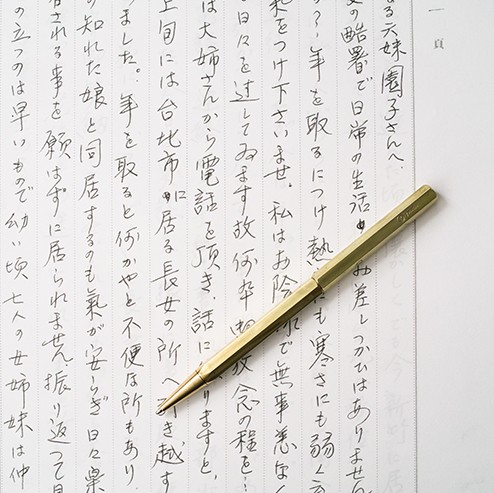 一 頁
なる六妹 園子さんへ、
の酷暑で日常の生活 お差しつかひはありません
年を取るにつけ 熱 にも寒さにも弱く
気をつけ下さいませ。私はお陰 で無事恙なく
日々を過してゐます故何卒 放念の程を…
は大姉さんから電話を頂き、話に りますと、
上旬には台北市に居る長女の所へ き越す
りました。年を取ると何かやと不便な所もあり、
の知れた娘と同居するのも氣が安らぎ日々
される事を願はずに居られません、振り返つて
の立つのは早いもので幼い頃七人の女姉妹は仲